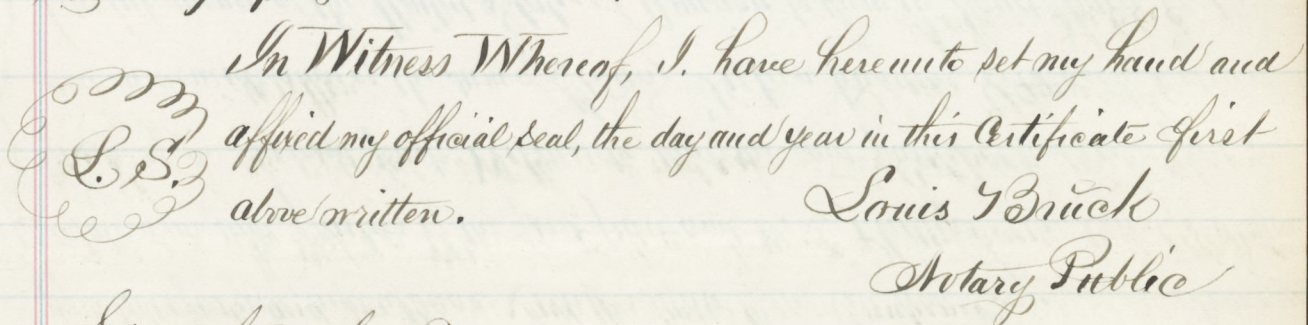 In Witness Whereof, I. have hereunto set my hand and
affixed my official seal, the day and year in this Certificate first
L. S.
above written.
Louis Bruck
Notary Public